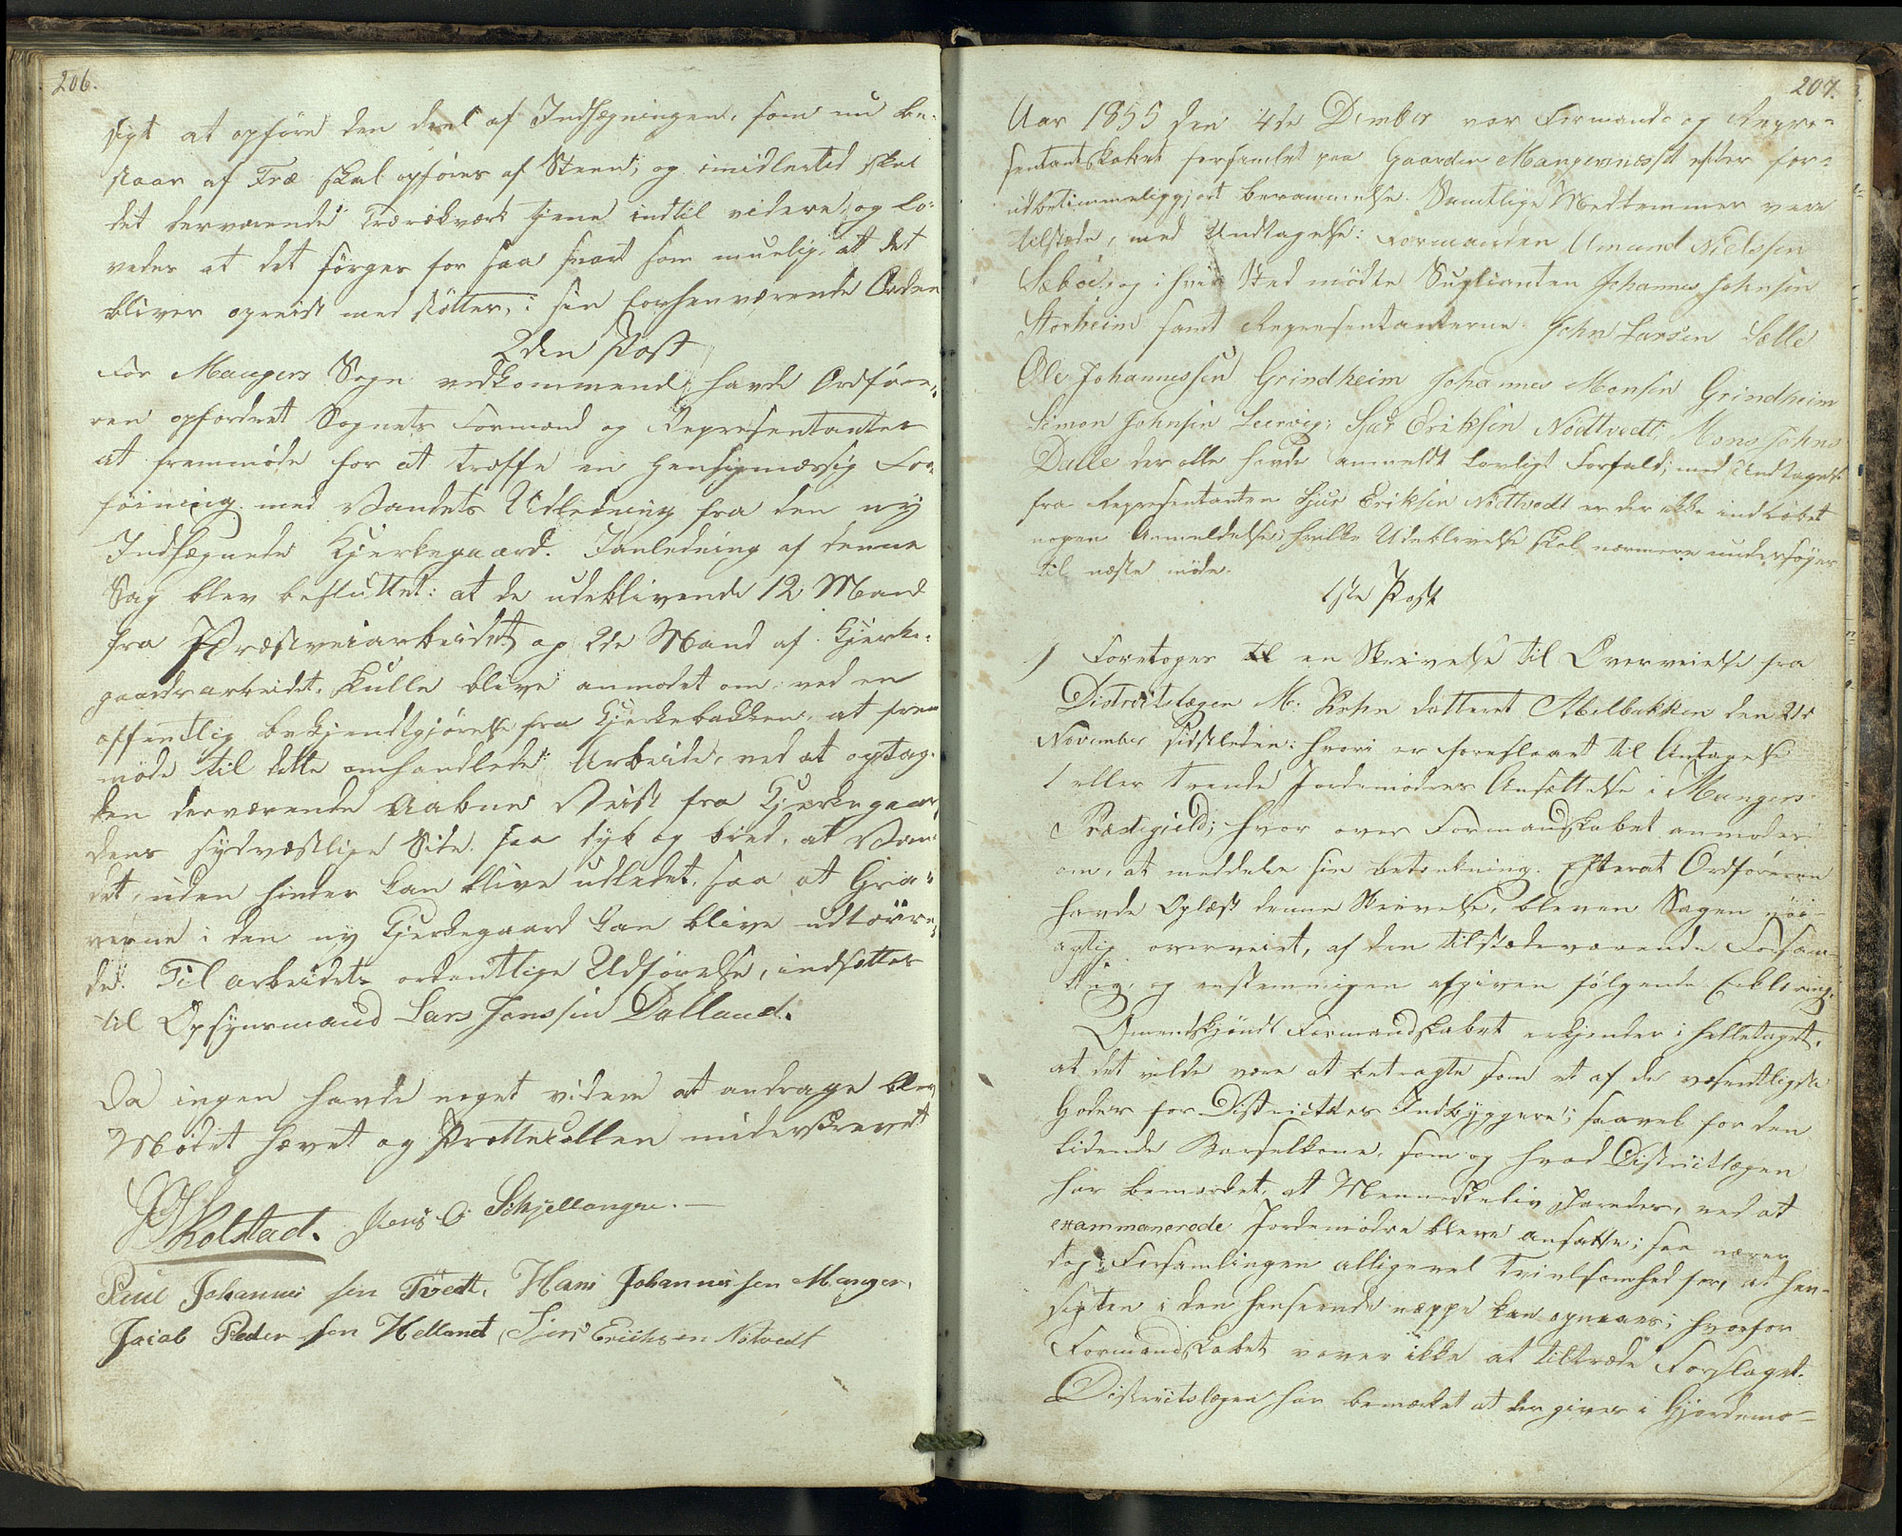 206.
sigt at opføre den deel af Indhegningen, som nu be-
staar af Træ skal opføres af Steen; og imidlertid skal
det derværende Trærækværk tjene indtil videre, og lo-
vedes at det sørges for saa snart som muelig, at det
bliver opreist med støtter, i sin forhenværende Orden
2den Post
For Mangers Sogn vedkommende, havde Ordføre-
ren opfordret Sognets Formænd og Repræsentanter
at fremmøde for at træffe en hensigtmæssig For-
føining med Vandets Udledning fra den ny
Indhegnede Kjerkegaard. I anledning af denne
Sag blev besluttet: at de udeblivende 12 Mand
fra Præsteveiarbeidet og 2de Mand af Kjerke-
gaardsarbeidet, skulle blive anmodet om, ved en
offentlig bekjendtgjørelse fra Kjerkebakken, at frem
møde til dette omhandlede Arbeide, ved at optag-
den derværende Aabne Veist fra Kjerkegaar-
dens sydvæstlige Side saa dyb og bred, at Van-
det, uden hinder kan blive udledet, saa at Gra-
verne i den ny Kjerkegaard kan blive udtørre-
de. Til arbeidets ordentlige Udførelse, indsættes
til Opsynsmand Lars Jensen Dalland.
Da ingen havde noget videre at andrage blev
Mødet hævet og Prottecollen underskrevet
Kolstad. Jens O. Schjellanger.
Poul Johannes sen Tvedt, Hans Johannessen Manger,
Jacob Peder sen Helland, Sjur Eriksen Notvedt
207.
Aar 1855 den 4de Dember var Formands og Repre-
sentantskabet forsamlet paa Gaarden Mangersnæsset efter for-
udbetimmeliggjort berammelse. Samtlige Medlemmer vare
tilstede, med Undtagelse: Formanden Amund Nielssen
Sæbøe, og i hvis Sted mødte Suplianten Johannes Johnsen
Storheim samt Representanterne John Larsen Sælle
Ole Johannessen Grindheim Johannes Monsen Grindheim
Simon Johnsen Leervig, Sjur Eriksen Nødtvedt, Mons Johns
Dalle der alle havde anmeldt lovligt Forfald; med Undtagelse
fra Representanten Sjur Eriksen Nødtvedt er der ikke indløbet
nogen Anmeldelse, hvilke Udeblivelse skal nærmere undersøges
til næste møde.
1ste Post
1 Foretoges til en Skrivelse til Overveielse fra
Distriitslægen M: datteret Abelbakken den 21d
November sidstleden: hvori er foreslaaet til Antagelse
1 eller tvende Jordemødres Ansættelse i Mangers
Præstegield; hvor over Formandskabet anmodes
om, at meddele sin betænkning. Efterat Ordføreren
havde Oplæst denne Skrivelse, bleven Sagen nøi-
agtig overveiet, af den tilstedeværende Forsam-
ling, og eenstemmigen afgiven følgende Erklæring.
Omendskjøndt Formandskabet erkjender i heletaget,
at det vilde være at betragte som et af de væsentligste
Goder for Districttes Indbyggere; saavel for den
lidende Barselkone, som og hvad Distriitlægen
har bemærket, at Menneskeliv sparedes, ved at
exammanerede Jordemødre bleve ansatte; saa nærer
dog Forsamlingen alligevel Tvivlsomhed for, at hen-
sigten i den henseende neppe kan opnaaes; hvorfor
Formandskabet vover ikke at tiltræde Forslaget.
Distriitslægen har bemærket at der gives i Gjordemo-